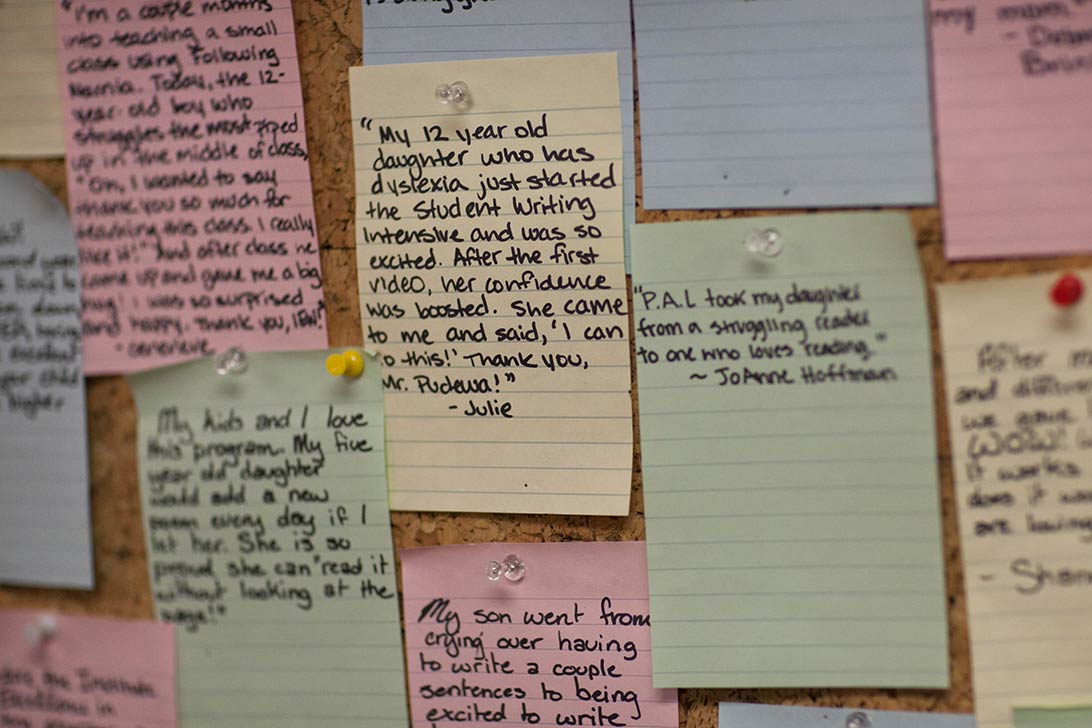 "I'm a couple months
into teaching a small
class using Following
Narnia. Today, the 12-
year-old boy who
struggles the most piped
up in the middle of class,
"Oh, I wanted to say
thank you so much for
teaching this class. I really
like it!" And after class he
came up and gave me a big
hug! I was so surprised
and happy. Thank you, IEW!"
- Genevieve
"My 12 year old
daughter who has
dyslexia just started
the Student Writing
Intensive and was so
excited. After the first
video, her confidence
was boosted. She came
to me and said, 'I can
do this!' Thank you,
Mr. Pudewa!"
- Julie
my mom."
"P.A.L took my daughter
from a struggling reader
to one who loves reading."
~ JoAnne Hoffman
My kids and I love
this program. My five
year old daughter
would add a new
poem every day if I
let her. She is so
proud she can "read it
without looking at the
page!"
My son went from
crying over having
to write a couple
sentences to being
excited to write
After
and
we gave
WOW!
it works
does it
are having
- Shan
your child
higher
the Institute
Excellence in